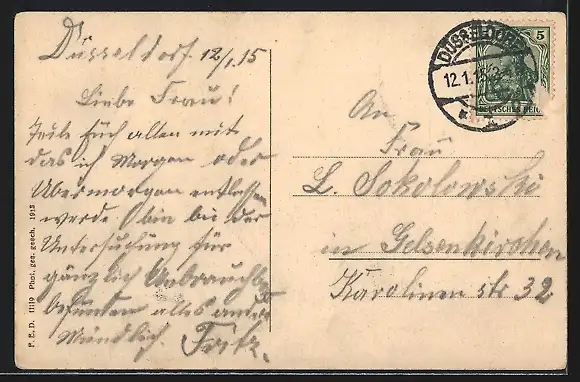 Düsseldorf 12/1.15
Liebe Frau!
Teile Euch allen mit
das ich Morgen oder
Übermorgen entlassen
werde bin bei der
Untersuchung für
gänzlich Unbrauchbar
befunden alles andre
Mündlich. Fritz.
An
Frau
L. Sokolowski
in Gelsenkirchen
Karolinenstr 32
DÜSSELDORF
12.1.15
5
DEUTSCHES REICH
F. E. D. 1119 Phot. ges. gesch. 1913